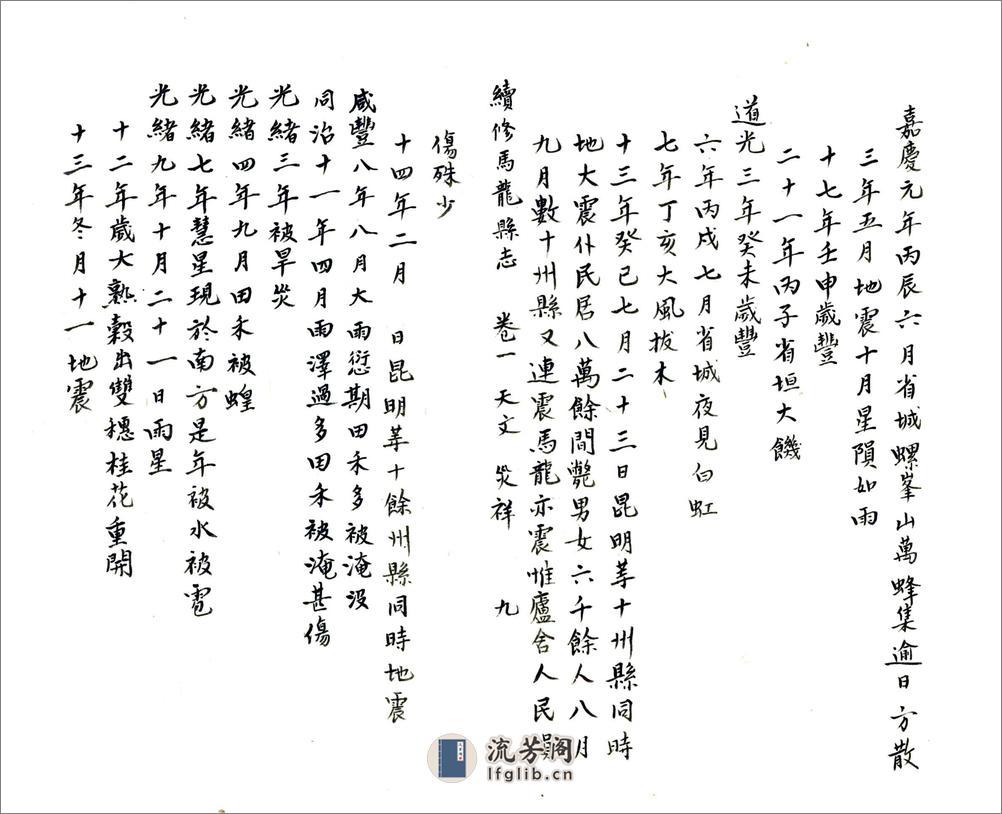 嘉慶元年丙辰六月省城螺峯山萬蜂集逾日方散
三年五月地震十月星隕如雨
十七年壬申歲豐
二十一年丙子省垣大饑
道光三年癸未歲豐
六年丙戌七月省城夜見白虹
七年丁亥大風拔木
十三年癸巳七月二十三日昆明等十州縣同時
地大震仆民居八萬餘間斃男女六千餘人八月
九月數十州縣又連震馬龍亦震惟廬舍人民
續修馬龍縣志 卷一 天文 災祥 九
傷殊少
十四年二月 日昆明等十餘州縣同時地震
咸豐八年八月大雨愆期田禾多被淹没
同治十一年四月雨澤過多田禾被淹甚傷
光緒三年被旱災
光緒四年九月田禾被蝗
光緒七年慧星現於南方是年被水被雹
光緒九年十月二十一日雨星
十二年歲大熟穀出雙穗桂花重開
十三年冬月十一地震
流芳閣
lfglib.cn